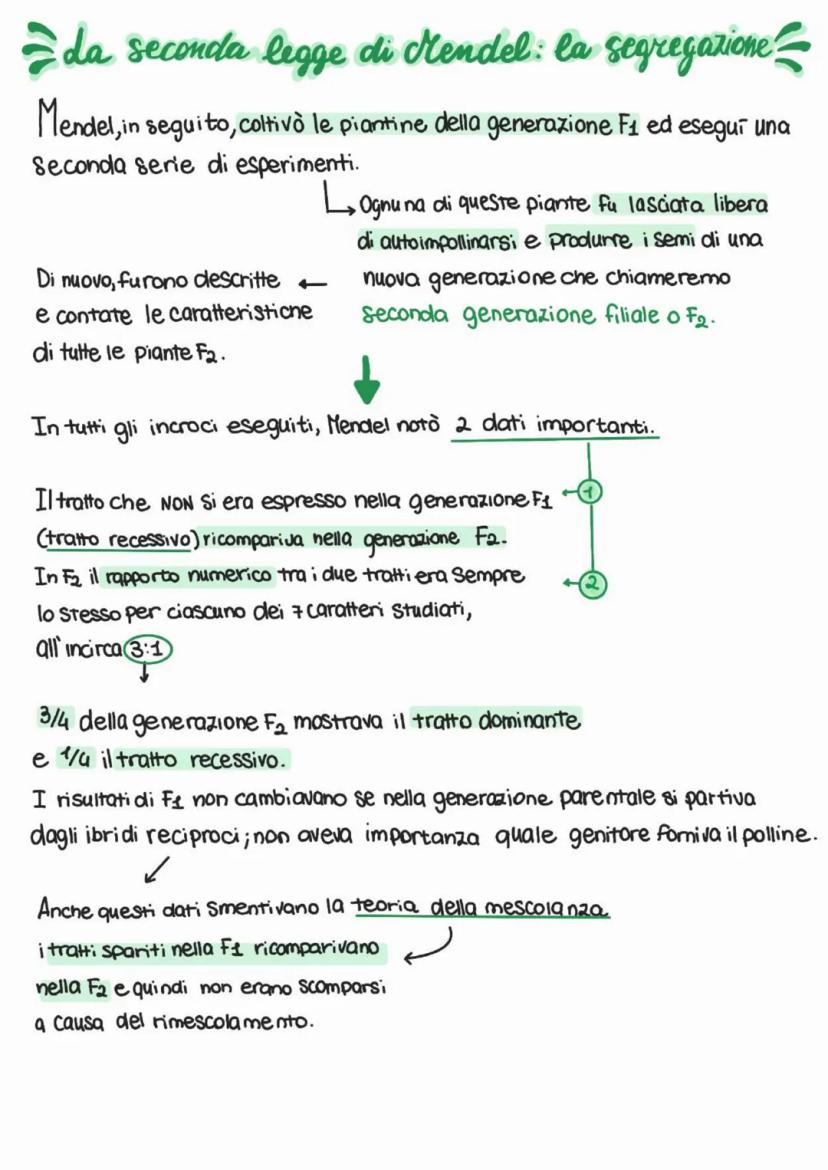 La seconda legge di Mendel: la segregazione
Mendel, in seguito, coltivò le piantine della generazione F1 ed eseguī una
seconda serie di esperimenti.
Ognuna di queste piante fu lasciata libera
di autoimpollinarsi e produrre i semi di una
nuova generazione che chiameremo
seconda generazione filiale o F2.
Di nuovo, furono descritte
e contate le caratteristiche
di tutte le piante F2.
In tutti gli incroci eseguiti, Mendel notò 2 dati importanti.
1
Il tratto che NON si era espresso nella generazione F1
(tratto recessivo) ricompariva nella generazione F2.
2
In F2 il rapporto numerico tra i due tratti era sempre
lo stesso per ciascuno dei 7 caratteri studiati,
all'incirca 3:1
3/4 della generazione F2 mostrava il tratto dominante
e 1/4 il tratto recessivo.
I risultati di F1 non cambiavano se nella generazione parentale si partiva
dagli ibridi reciproci; non aveva importanza quale genitore forniva il polline.
Anche questi dati smentivano la teoria della mescolanza
i tratti spariti nella F1 ricomparivano
nella F2 e quindi non erano scomparsi
a causa del rimescolamento.